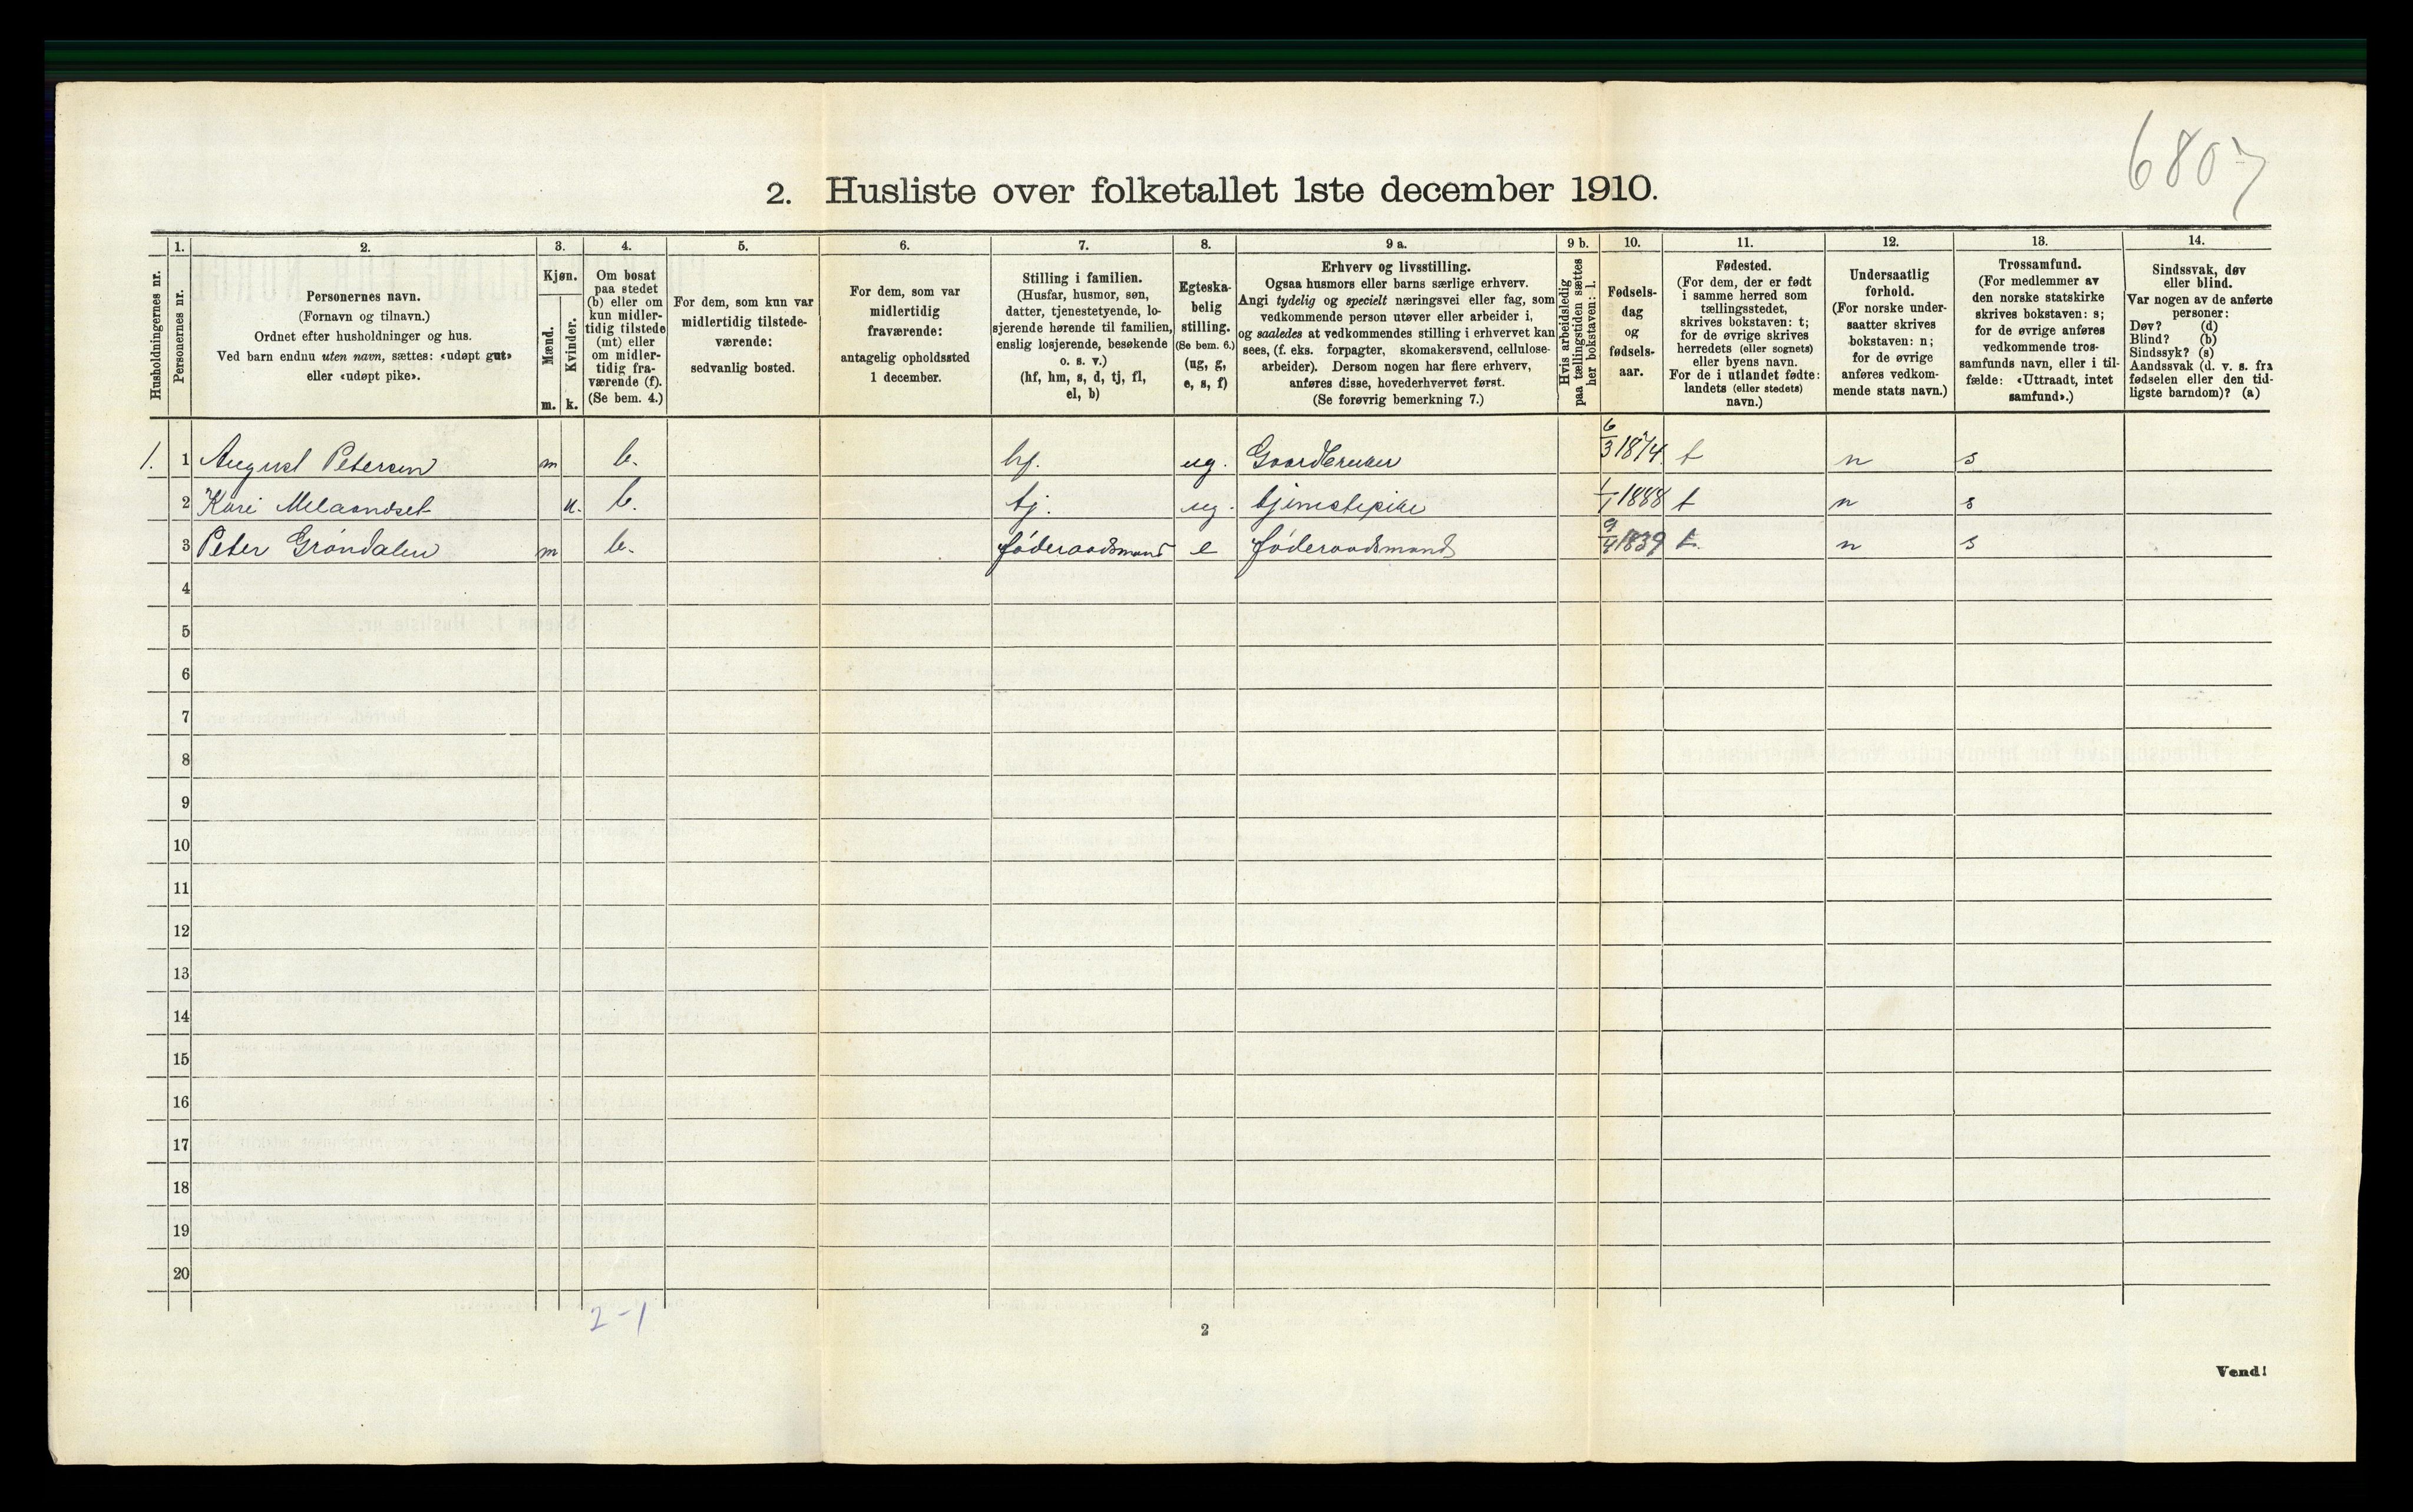 6807
2. Husliste over folketallet 1ste december 1910.
1. 2. 3. 4. 5. 6. 7. 8. 9 a. 9 b. 10. 11. 12. 13. 14.
Husholdningernes nr.
Personernes nr.
Personernes navn.
(Fornavn og tilnavn.)
Ordnet efter husholdninger og hus.
Ved barn endnu uten navn, sættes: «udøpt gut»
eller «udøpt pike».
Kjøn.
Mænd.
Kvinder.
m. k.
Om bosat
paa stedet
(b) eller om
kun midler-
tidig tilstede
(mt) eller
om midler-
tidig fra-
værende (f).
(Se bem. 4.)
For dem, som kun var
midlertidig tilstede-
værende:
sedvanlig bosted.
For dem, som var
midlertidig
fraværende:
antagelig opholdssted
1 december.
Stilling i familien.
(Husfar, husmor, søn,
datter, tjenestetyende, lo-
sjerende hørende til familien,
enslig losjerende, besøkende
o. s. v.)
(hf, hm, s, d, tj, fl,
el, b)
Egteska-
belig
stilling.
(Se bem. 6.)
(ug, g,
e, s, f)
Erhverv og livsstilling.
Ogsaa husmors eller barns særlige erhverv.
Angi tydelig og specielt næringsvei eller fag, som
vedkommende person utøver eller arbeider i,
og saaledes at vedkommendes stilling i erhvervet kan
sees, (f. eks. forpagter, skomakersvend, cellulose-
arbeider). Dersom nogen har flere erhverv,
anføres disse, hovederhvervet først.
(Se forøvrig bemerkning 7.)
Hvis arbeidsledig
paa tællingstiden sættes
her bokstaven: l.
Fødsels-
dag
og
fødsels-
aar.
Fødested.
(For dem, der er født
i samme herred som
tællingsstedet,
skrives bokstaven: t;
for de øvrige skrives
herredets (eller sognets)
eller byens navn.
For de i utlandet fødte:
landets (eller stedets)
navn.)
Undersaatlig
forhold.
(For norske under-
saatter skrives
bokstaven: n;
for de øvrige
anføres vedkom-
mende stats navn.)
Trossamfund.
(For medlemmer av
den norske statskirke
skrives bokstaven: s;
for de øvrige anføres
vedkommende tros-
samfunds navn, eller i til-
fælde: «Uttraadt, intet
samfund».)
Sindssvak, døv
eller blind.
Var nogen av de anførte
personer:
Døv? (d)
Blind? (b)
Sindssyk? (s)
Aandssvak (d. v. s. fra
fødselen eller den tid-
ligste barndom)? (a)
1. 1 August Petersen m b. hf. ug. Gaardbruker 6/3 1874 t n s
2 Kari Melaandset k. b. tj. ug. tjenestepike 1/1 1888 t n s
3 Peter Grøndalen m b. føderaadsmand e føderaadsmand 9/4 1839 t. n s
4
5
6
7
8
9
10
11
12
13
14
15
16
17
18
19
20
2-1
2
Vend!